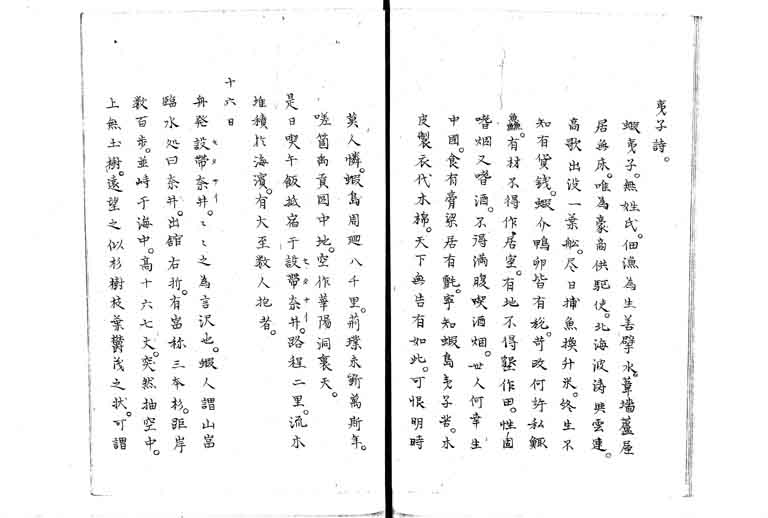 夷子詩。
蝦夷子。無姓氏。佃漁為生善擘水。葦墻蘆屋
居無床。唯為豪商供駆使。北海波涛與雲連。
高歌出没一葉舩。尽日捕魚換升米。終生不
知有貸銭。蝦介鴨卵皆有税。苛政何許私鰕
蠡。有材不得作居室。有地不得墾作田。性固
嗜烟又嗜酒。不得満腹喫酒烟。世人何幸生
中國。食有膏粱居有氈。寧知蝦島夷子苦。木
皮製衣代木棉。天下無告有如此。可恨明時
莫人憐。蝦島周廻八千里。荊璞未斲萬斯年。
嗟箇禹貢図中地。空作華陽洞裏天。
是日喫午飯。抵宿于設帯奈井。路程二里。流木
堆積於海濱。有大至数人抱者。
十六日
舟発設帯奈井。ミ之為言沢也。蝦人謂山富
臨水処曰奈井。出舘右折。有富称三本杉。距岸
数百歩。並峙于海中。高十六七丈。突然抽空中。
上無土樹。遠望之似杉樹枝葉鬱茂之状。可謂